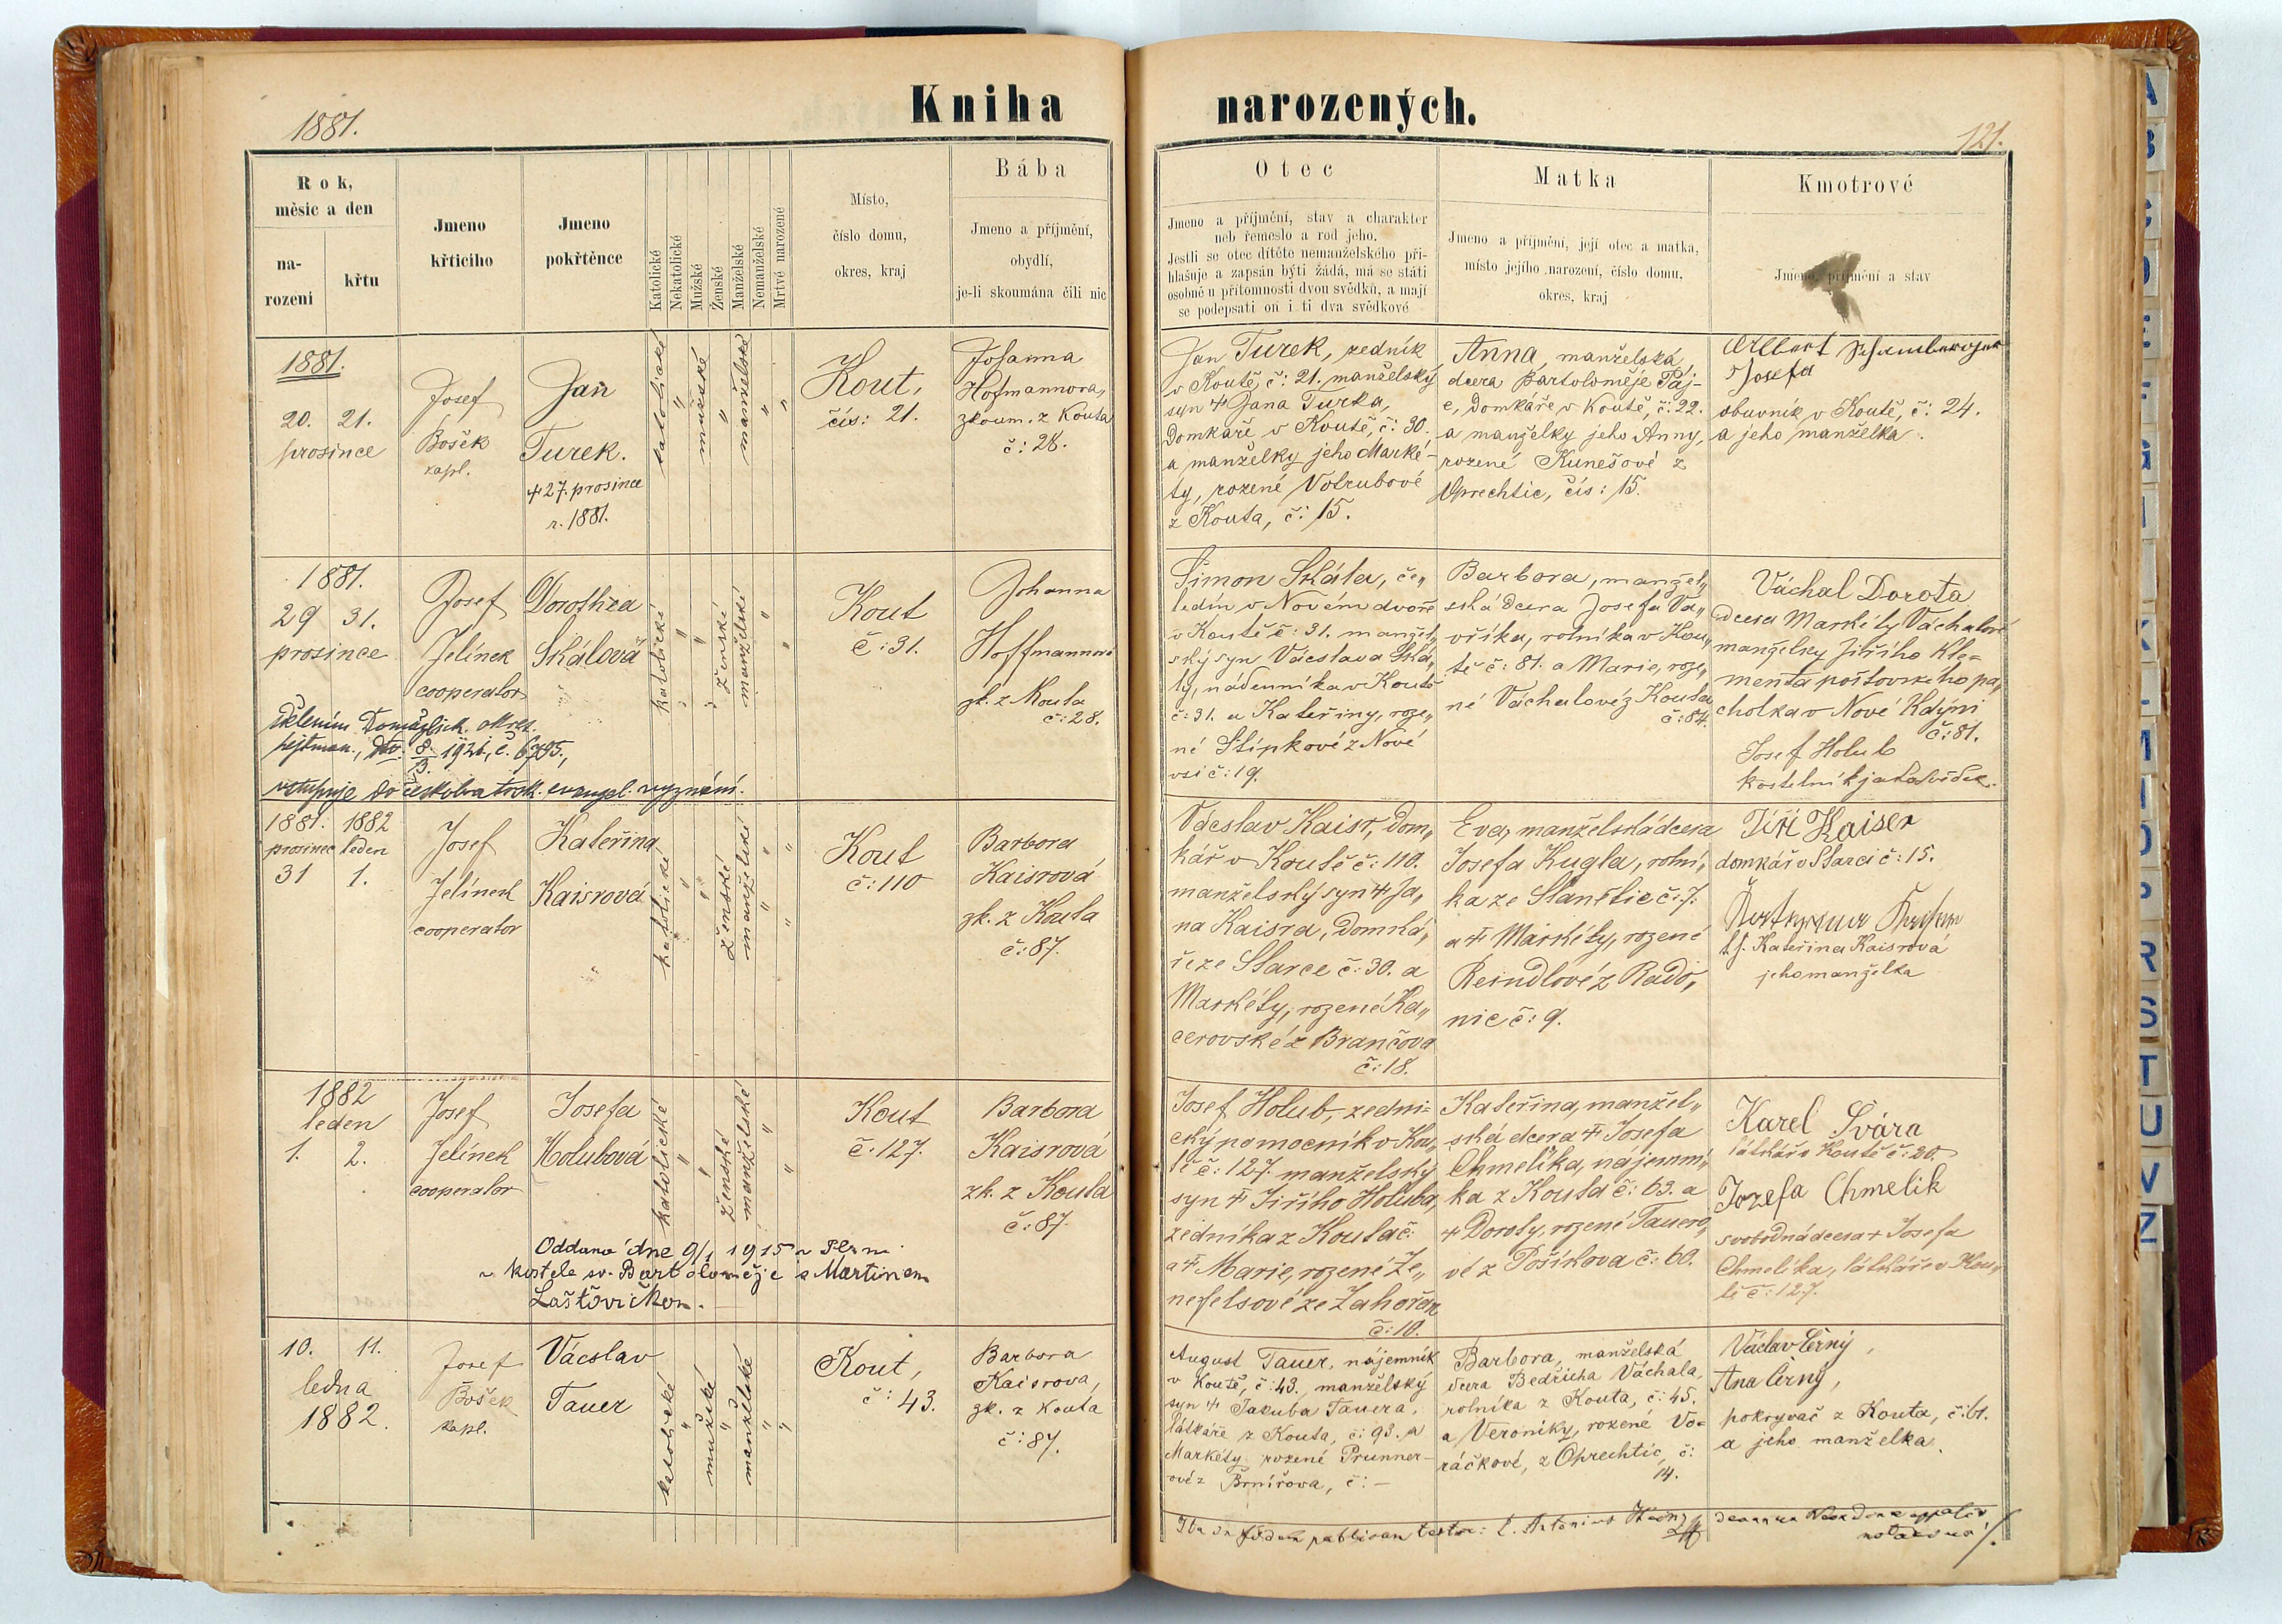 1881.
Kniha narozených.
121.
Rok,
měsic a den
na-
rození
křtu
Jmeno
křticího
Jmeno
pokřtěnce
Katolické
Nekatolické
Mužské
Ženské
Manželské
Nemanželské
Mrtvě narozené
Místo,
číslo domu,
okres, kraj
Bába
Jmeno a příjmění,
obydlí,
je-li skoumána čili nic
Otec
Jmeno a příjmění, stav a charakter
neb řemeslo a rod jeho.
Jestli se otec dítěte nemanželského při-
hlašuje a zapsán býti žádá, má se státi
osobně u přítomnosti dvou svědků, a mají
se podepsati on i ti dva svědkové
Matka
Jmeno a příjmění, její otec a matka,
místo jejího narození, číslo domu,
okres, kraj
Kmotrové
Jmeno, příjmění a stav
1881.
20. 21.
prosince
Josef
Bošek
kapl.
Jan
Turek.
+ 27. prosince
r. 1881.
katolické
"
mužské
"
manželské
"
"
Kout,
čís: 21.
Johanna
Hofmannova,
zkoum. z Kouta
č: 28.
Jan Turek, zedník
v Koutě, č: 21. manželský
syn + Jana Turka,
domkáře v Koutě, č: 30.
a manželky jeho Marké-
ty, rozené Votrubové
z Kouta, č: 15.
Anna, manželská
dcera Bartoloměje Páj-
e, domkáře v Koutě, č: 22.
a manželky jeho Anny,
rozené Kunešové z
Oprechtic, čís: 15.
Albert
Josefa
obuvník v Koutě, č: 24.
a jeho manželka.
1881.
29 31.
prosince
Josef
Jelínek
cooperator
Dorothea
Skálová
katolické
"
"
ženské
manželské
"
"
Kout
č: 31.
Johanna
Hoffmannová
zk. z Kouta
č: 28.
Sdělením Domažlick. okres.
hejtman., dto. 8. 1926, č. 6795,
vstupuje do českobratrsk. evangel. vyznání.
Šimon Skála, če„
ledín v Novém dvoře
v Koutě č: 31. manžel„
ský syn Václava Ská„
ly, nádenníka v Koutě
č: 31. a Kateřiny, roze„
né Slípkové z Nové
vsi č: 19.
Barbora, manžel„
ská dcera Josefa Va„
vříka, rolníka v Kou„
tě č: 81. a Marie, roze„
né Váchalové z Kouta
č: 84.
Váchal Dorota
dcera Markéty Váchalové
manželky Jiřího Kle=
menta poštovského pa„
cholka v Nové Kdýni
č: 81.
Josef Holub
kostelník jako svědek.
1881. 1882
prosinec leden
31 1.
Josef
Jelínek
cooperator
Kateřina
Kaisrová
katolické
"
"
ženské
manželské
"
"
Kout
č: 110
Barbora
Kaisrová
zk. z Kouta
č: 87.
Václav Kaisr, dom„
kář v Koutě č: 110.
manželský syn + Ja„
na Kaisra, domká„
ře ze Starce č: 30. a
Markéty, rozené Ka„
cerovské z Brančova
č: 18.
Eva, manželská dcera
Josefa Kugla, rolní„
ka ze Stanětic č: 7.
a + Markéty, rozené
Reindlové z Rado„
nic č: 9.
Jiří Kaiser
domkář v Starci č: 15.
tj. Kateřina Kaisrová
jeho manželka
1882
leden
1. 2.
Josef
Jelínek
cooperator
Josefa
Holubová
katolické
"
"
ženské
manželské
"
"
Kout
č: 127.
Barbora
Kaisrová
zk. z Kouta
č: 87.
Oddaná dne 9/1 1915 v Plzni
v kostele sv. Bartoloměje s Martinem
Laštovičkou.
Josef Holub, zedni=
cký pomocník v Kou„
tě č: 127. manželský
syn + Jiřího Holuba,
zedníka z Kouta č:
a + Marie, rozené Ze„
nefelsové ze Zahořan
č: 10.
Kateřina, manžel„
ská dcera + Josefa
Chmelíka, nájemní„
ka z Kouta č: 63. a
+ Doroty, rozené Tauero„
vé z Pošíkova č: 60.
Karel Švára
látkář v Koutě č: 20.
Jozefa Chmelik
svobodná dcera + Josefa
Chmelíka, látkáře v Kou„
tě č: 127.
10. 11.
ledna
1882.
Josef
Bošek
kapl.
Václav
Tauer
katolické
"
mužské
"
manželské
"
"
Kout,
č: 43.
Barbora
Kaisrova,
zk. z Kouta
č: 87.
August Tauer, nájemník
v Koutě, č: 43., manželský
syn + Jakuba Tauera,
látkáře z Kouta, č: 93. a
Markéty rozené Prunner-
ové z Brnířova, č: —
Barbora, manželská
dcera Bedřicha Váchala,
rolníka z Kouta, č: 45.
a Veroniky, rozené Vo=
ráčkové, z Oprechtic, č:
14.
Václav Černý,
Ana Černý,
pokryvač z Kouta, č: 61.
a jeho manželka.
Ita in fidem publicam testor: Antonius
A
B
C
D
E
F
G
I
K
L
M
R
S
T
U
V
Z